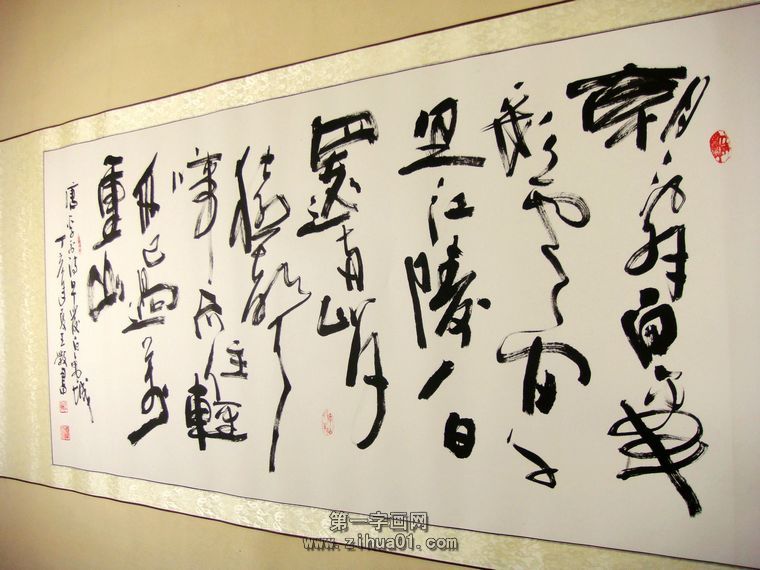 朝辞白帝
彩雲间千
里江陵一日
還两岸
猿声
啼不住輕
舟已過万
重山
唐李白诗早发白帝城
丁亥年夏王
第一字画网
www.zihua01.com